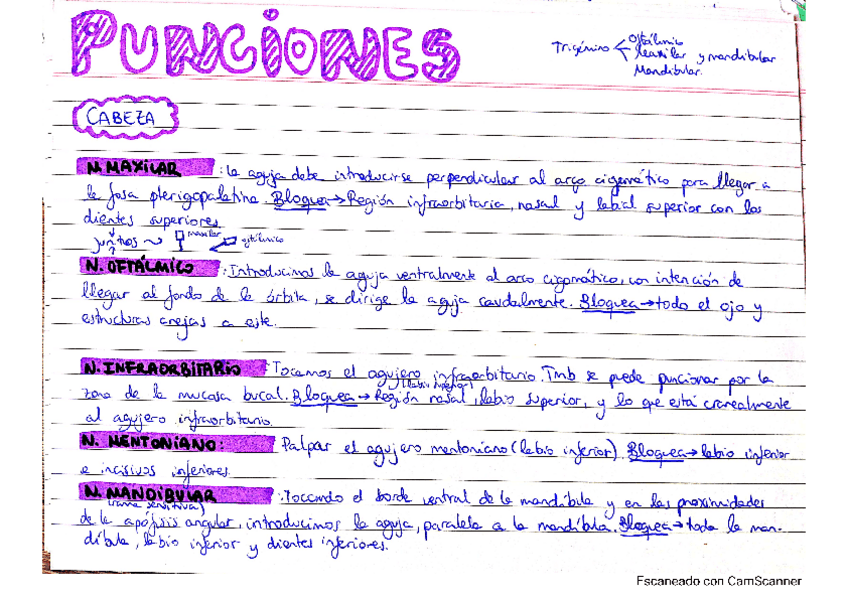 PUNCIONES
Trigémino
Oftálmico
Maxilar y mandibular
Mandibular.
CABEZA
N. MAXILAR : la aguja debe introducirse perpendicular al arco cigomático para llegar a
la fosa pterigopalatina. Bloquea → Región infraorbitaria, nasal y labial superior con los
dientes superiores
juntos maxilar oftálmico
N. OFTÁLMICO : Introducimos la aguja ventralmente al arco cigomático, con intención de
llegar al fondo de la órbita, se dirige la aguja caudalmente. Bloquea → todo el ojo y
estructuras anejas a este.
N. INFRAORBITARIO : Tocamos el agujero infraorbitario. Tmb se puede puncionar por la
zona de la mucosa bucal. Bloquea → Región nasal, labio superior, y lo que está cranealmente
al agujero infraorbitario.
N. MENTONIANO: Palpar el agujero mentoniano (labio inferior). Bloquea → labio inferior
e incisivos inferiores.
N. MANDIBULAR : Toccando el borde ventral de la mandíbula y en las proximidades
(rama sensitiva)
de la apófisis angular, introducimos la aguja, paralela a la mandíbula. Bloquea → toda la man-
díbula, labio inferior y dientes inferiores.
Escaneado con CamScanner